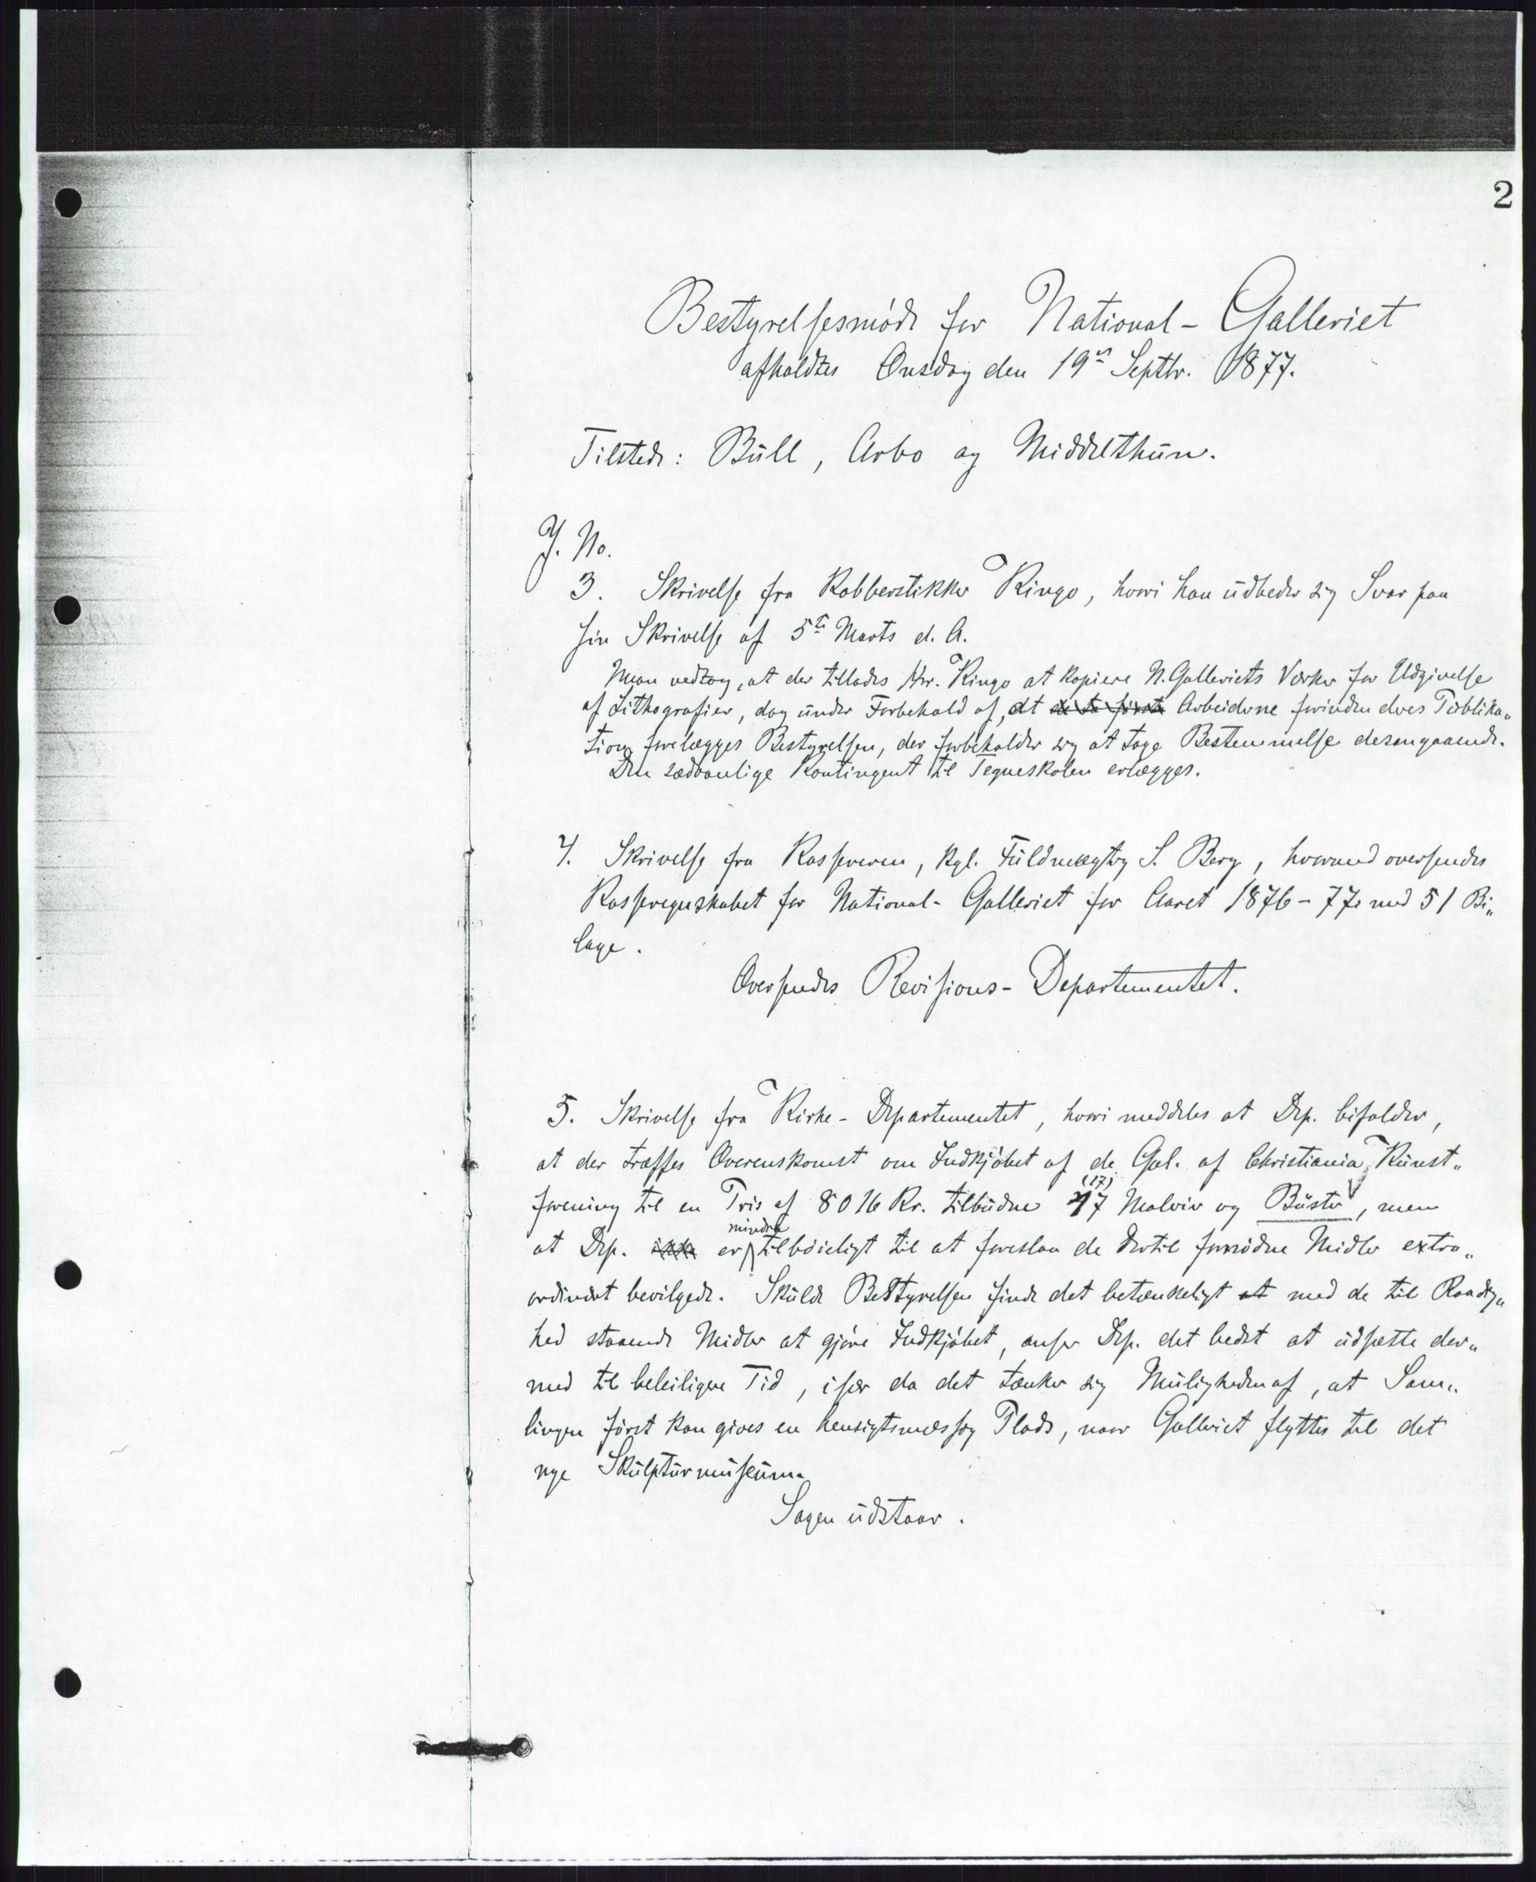 2
Bestyrelsesmöde for National-Galleriet
afholdtes Onsdag den 19de Septbr. 1877.
Tilstede: Bull, Arbo og Middelthun.
J. No.
3. Skrivelse fra Kobberstikker Ringo, hvori han udbeder sig Svar paa
sin Skrivelse af 5te Marts d. A.
Man vedtog, at der tillades Hr. Ringo at kopiere N. Galleriets Værker for Udgivelse
af Lithografier, dog under Forbehold af, at Arbeiderne forinden deres Publika„
tion forelægges Bestyrelsen, der forbeholder sig at tage Bestemmelse desangaaende.
Den sædvanlige Kontingent til Tegneskolen erlægges.
4. Skrivelse fra Kassereren, kgl. Fuldmægtig S. Berg, hvormed oversendes
Kasseregnskabet for National-Galleriet for Aaret 1876-77 med 51 Bi„
lage.
Oversendes Revisions-Departementet.
5. Skrivelse fra Kirke-Departementet, hvori meddeles at Dep. bifalder,
at der træffes Overenskomst om Indkjöbet af de Gal. af Christiania Kunst„
forening til en Pris af 8016 Kr. tilbudne 17 (17) Malerier og Büster, men
at Dep. er mindre tilböieligt til at foreslaa de dertil fornödne Midler extra„
ordinært bevilgede. Skulde Bestyrelsen finde det betænkeligt at med de til Raadig„
hed staaende Midler at gjöre Indkjöbet, anser Dep. det bedst at udsætte der„
med til beleiligere Tid, især da det tænker sig Muligheden af, at Sam„
lingen först kan gives en hensigtsmæssig Plads, naar Galleriet flyttes til det
nye Skulpturmuseum.
Sagen udstaar.